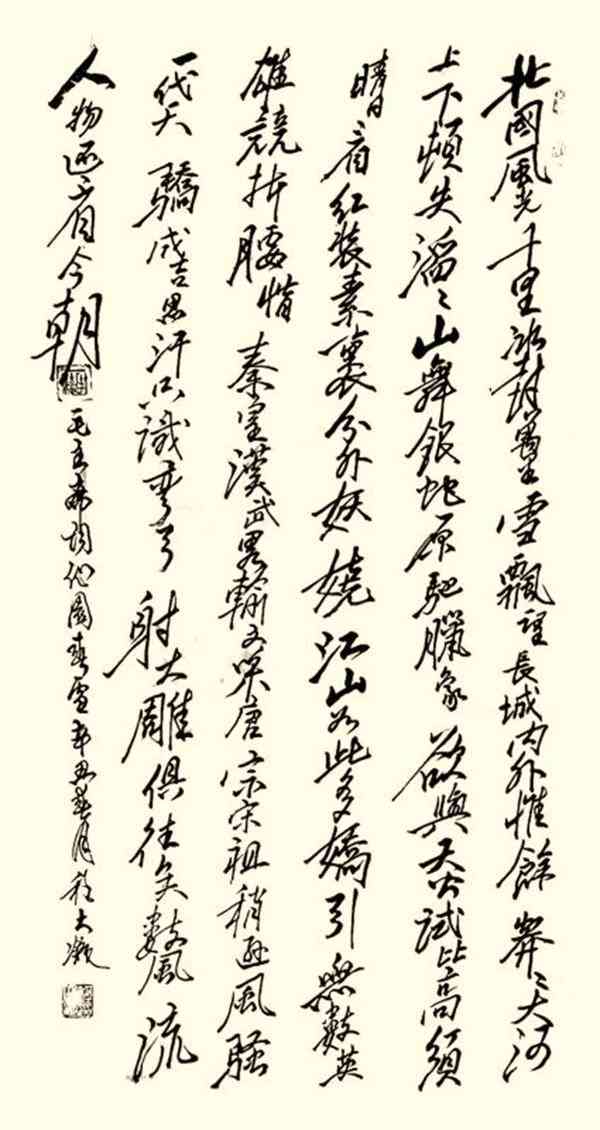 北國風光千里冰封萬里雪飄望長城內外惟餘莽〻大河
上下頓失滔〻山舞銀蛇原馳臘象欲與天公試比高須
晴日看紅裝素裹分外妖嬈江山如此多嬌引無數英
雄競折腰惜秦皇漢武略輸文采唐宗宋祖稍遜風騷
一代天驕成吉思汗只識彎弓射大雕俱往矣數風流
人物還看今朝
毛主席詞沁園春雪辛丑 月程大瀛